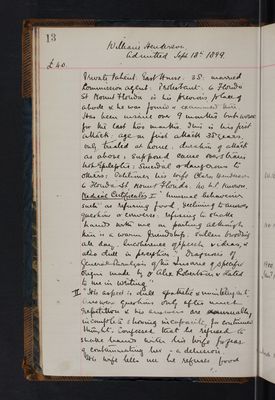 13
William Henderson.
Admitted Sept 18th 1899
£40.
Private Patient. East House. 35. married
Commission agent. Protestant. 6 Florida
St Mount Florida is his previous place of
abode & he was found & examined him
Has been insane over 9 months but worse
for the last two months. This is his first
attack. age on first attack 35 years.
only treated at home. duration of attack
as above. supposed cause overstrain
not Epileptic. Suicidal & dangerous to
others. Petitioner his wife Clara Henderson
6 Florida St. Mount Florida. No
Medical Certificates I "Unusual behaviour
such as refusing food, declining to answer
question or converse. refusing to shake
hands with me on parting although
him is a warm friendship. Sullen brooding
all day. Incoherence of speech & ideas, &
also dull in perception. Diagnosis of
General Paralysis of the Insane of specific
origin made by Dr Alex Robertson & stated
to me in writing"
II "His aspect is dull apathetic & unintelligent,
answers questions only after much
repetition & his answers are usually
incomplete shewing incapacity for continued
thought. Confessed that he refused to
shake hands with his wife for fear
of contaminating her - a delusion.
His wife tells me he refuses food